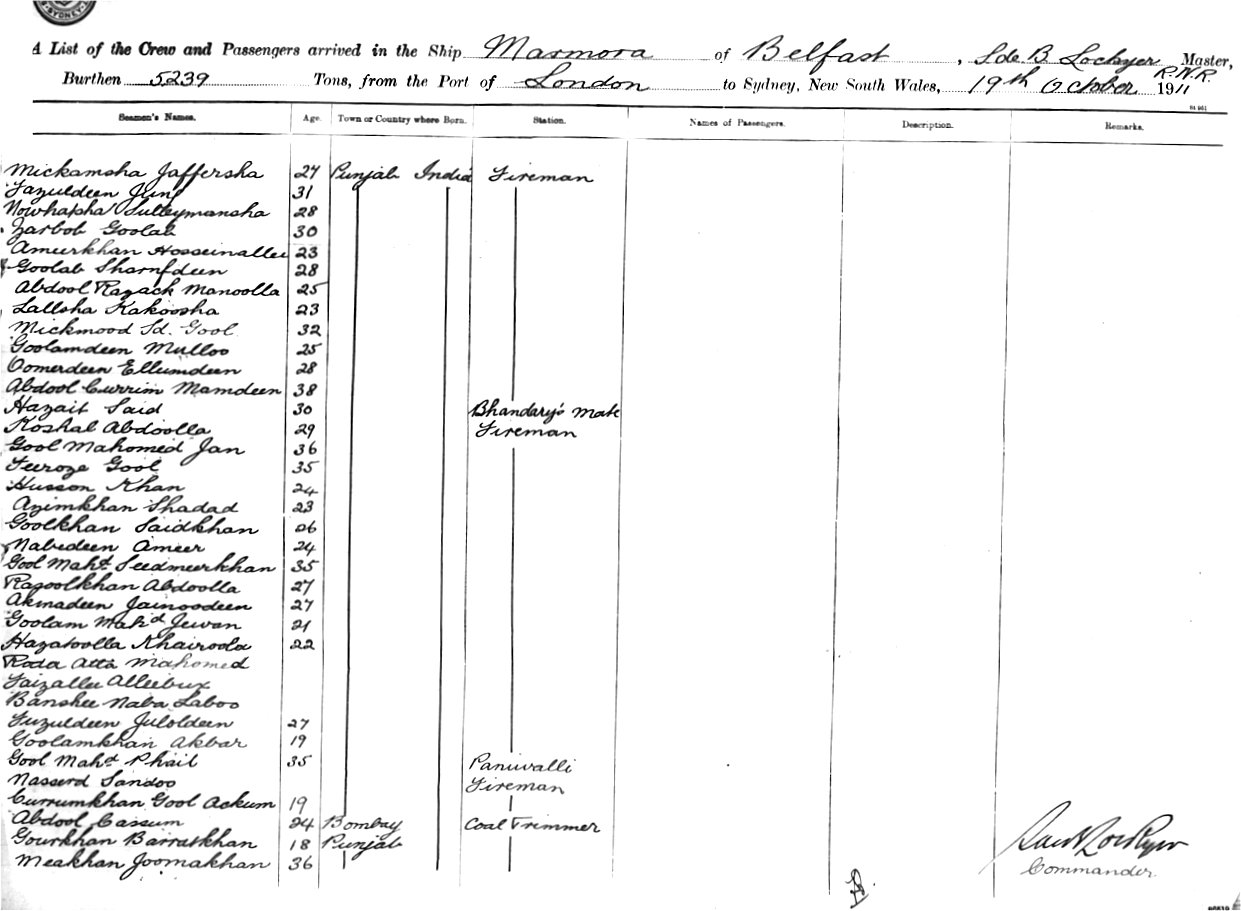 SYDNEY
A List of the Crew and Passengers arrived in the Ship Marmora of Belfast, Master,
Burthen 5239 Tons, from the Port of London to Sydney, New South Wales, 19th October 1911 R.N.R.
Seamen's Names. Age. Town or Country where Born. Station. Names of Passengers. Description. Remarks.
Mickamsha Jaffersha 27 Punjab India Fireman
Fazuldeen 31
Nowhatsha Sulleymansha 28
Zarbob Goolab 30
Ameerkhan Hosseinallee 23
Goolab Sharnfdeen 28
Abdool Razack Manoolla 25
Lallsha Kakoosha 23
Mickmood Sd. Gool 32
Goolamdeen Mulloo 25
Oomerdeen Ellumdeen 28
Abdool Currim Mamdeen 38
Hazait Said 30 Bhandary's Mate
Koshal Abdoolla 29 Fireman
Gool Mahomed Jan 36
Feeroze Gool 35
Husson Khan 24
Azimkhan Shadad 23
Goolkhan Saidkhan 26
Nabedeen Ameer 24
Gool Mahd. Seedmeerkhan 35
Rasoolkhan Abdoolla 27
Akmadeen Jainoodeen 27
Goolam Mahd Jewan 21
Hazatoolla Khairoola 22
Roda Atta Mahomed
Faizallee Alleebux
Banshee Naba Laboo
Fuzuldeen Juloldeen 27
Goolamkhan Akbar 19
Gool Mahd Phail 35 Paniwalli
Nasserd Sandoo Fireman
Currumkhan Gool Ackum 19
Abdool Cassum 24 Bombay Coal Trimmer
Gourkhan Barratkhan 18 Punjab
Meakhan Joomakhan 36
Commander.